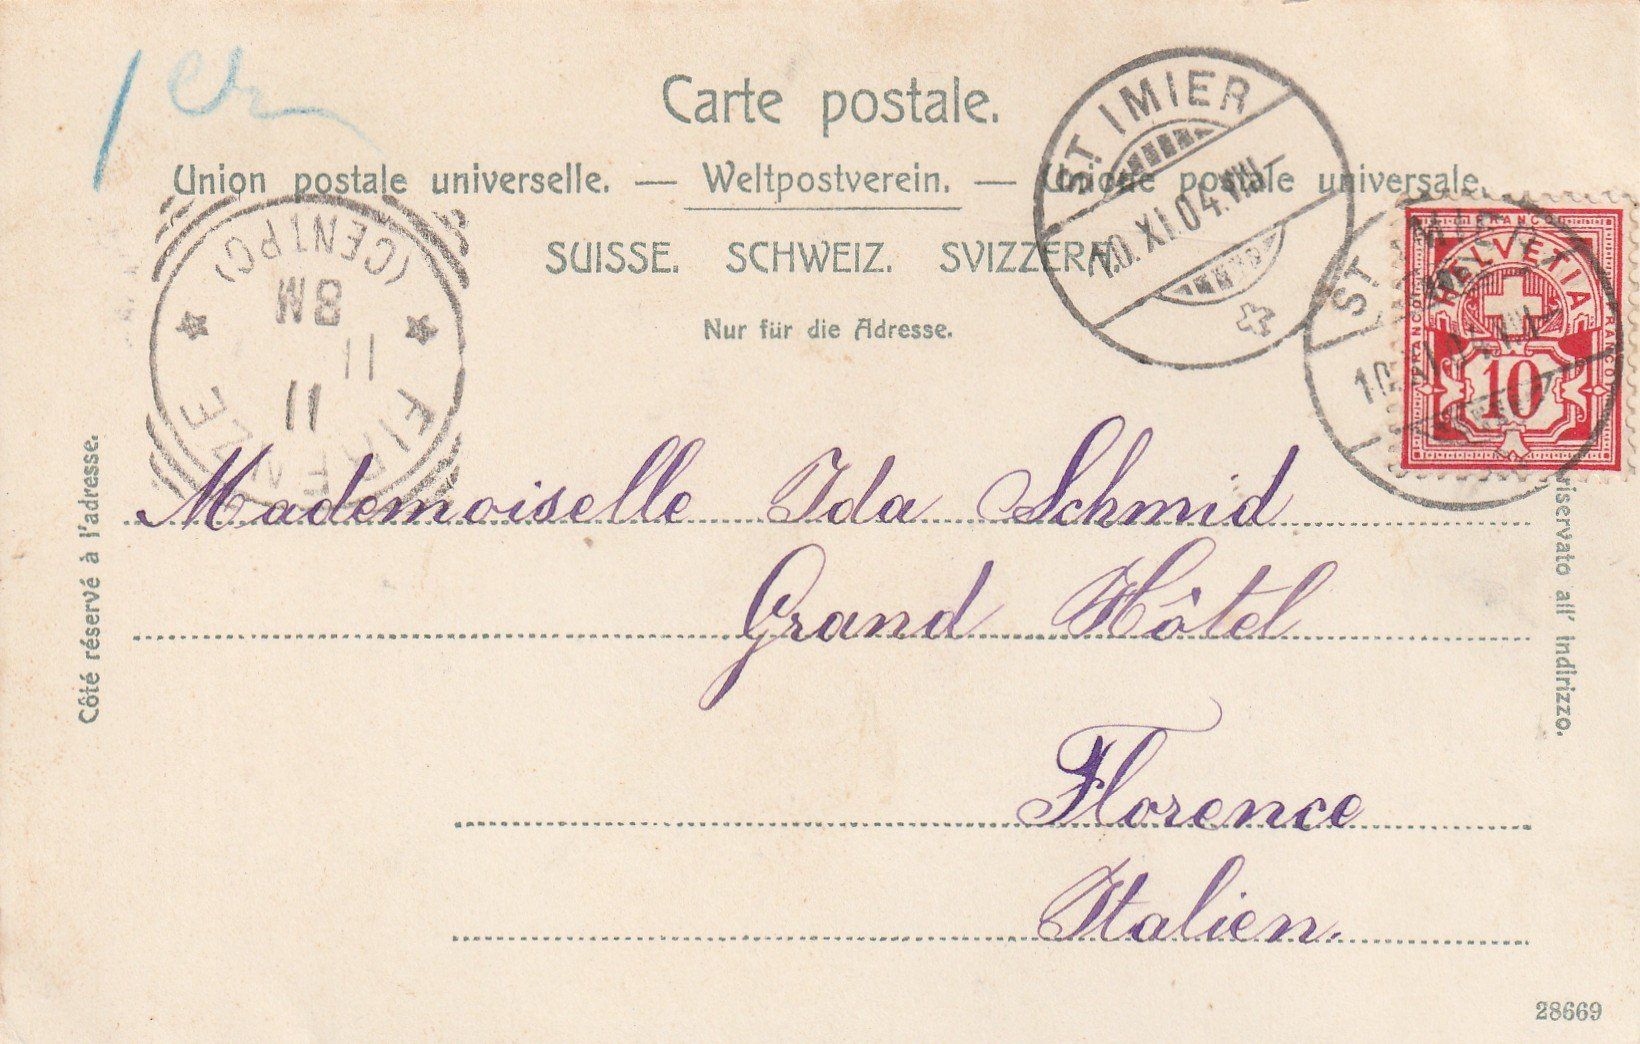 Carte postale.
Union postale universelle. — Weltpostverein. — Unione postale universale.
SUISSE. SCHWEIZ. SVIZZERA.
Nur für die Adresse.
ST. IMIER
10.XI.04.VIII
ST. IMIER
FRANCO
HELVETIA
FRANCO
FRANCO
10
(CENTRO)
8M
11
11
FIRENZE
Côté réservé à l'adresse.
riservato all' indirizzo.
Mademoiselle Ida Schmid
Grand Hôtel
Florence
Italien.
28669